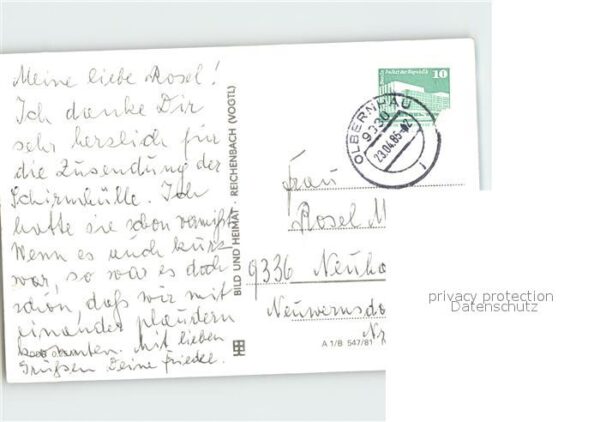 Meine liebe Rosel!
Ich danke Dir
sehr herzlich für
die Zusendung der
Schirmhülle. Ich
hatte sie schon vermißt
Wenn es auch kurz
war, so war es doch
schön, daß wir mit
einander plaudern
konnten. Mit lieben
Grüßen Deine Friedel.
BILD UND HEIMAT · REICHENBACH (VOGTL)
Palast der Republik
10
OLBERNHAU
9330
23.04.85-12
Frau
Rosel M
9336 Neuha
Neuwernsdo
Nr
A 1/B 547/81
privacy protection
Datenschutz